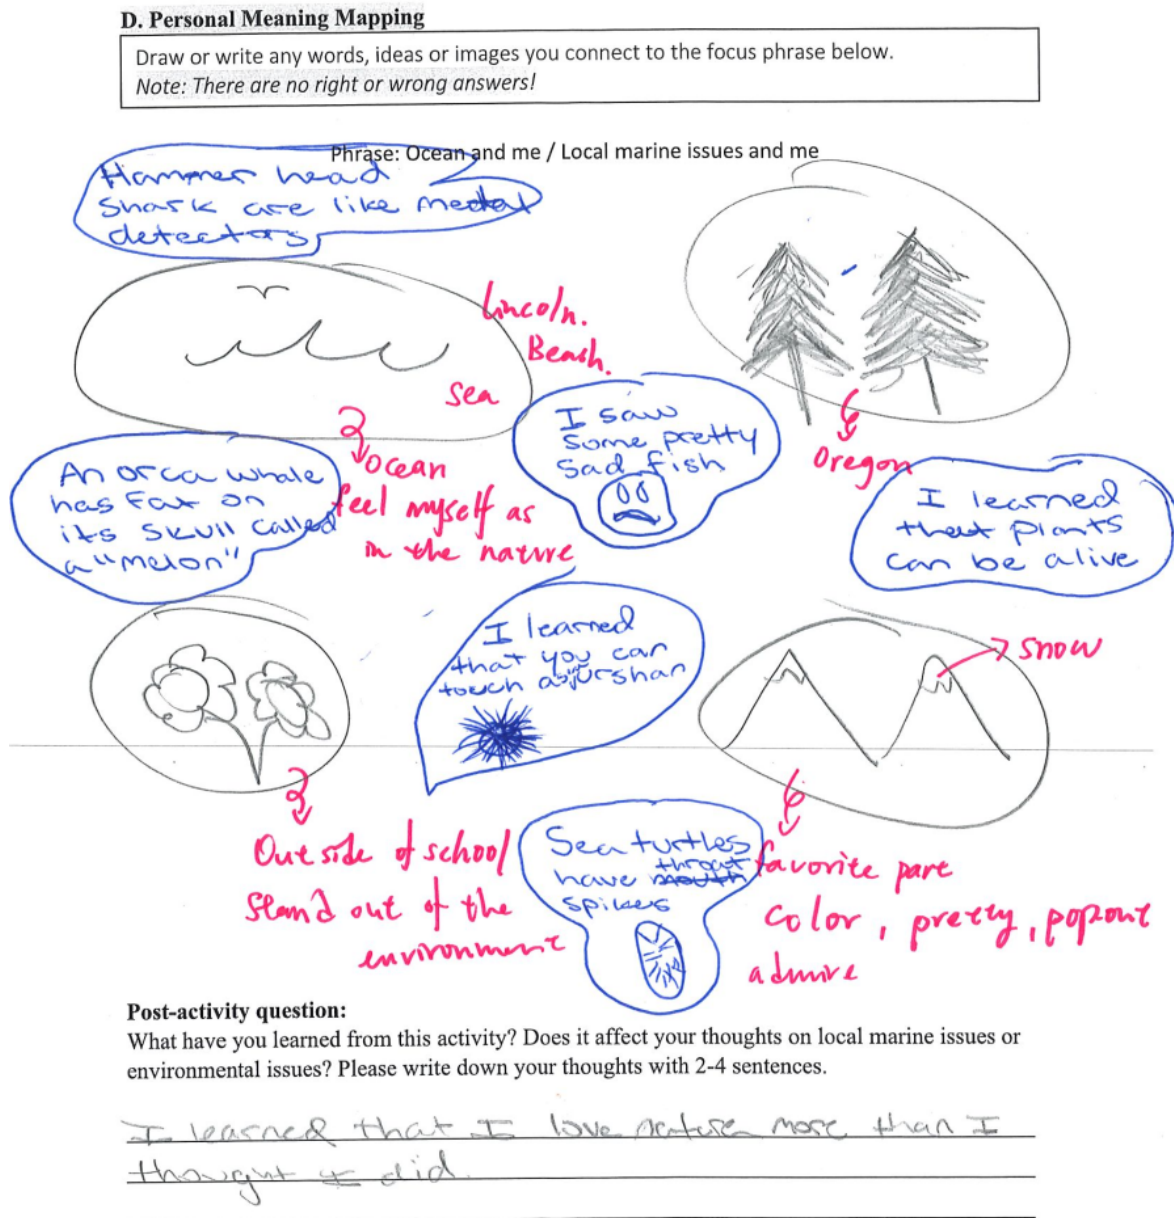 D. Personal Meaning Mapping
Draw or write any words, ideas or images you connect to the focus phrase below.
Note: There are no right or wrong answers!
Phrase: Ocean and me / Local marine issues and me
Hammer head
Shark are like metal
detectors
Lincoln.
Beach.
sea
Ocean
feel myself as
in the nature
I saw
some pretty
sad fish
Oregon
An orca whale
has Fat on
its Skull called
a "melon"
I learned
that plants
can be alive
I learned
that you can
touch
snow
Out side of school
Stand out of the
environment
Sea turtles
have throat
spikes
favorite part
color, pretty, popout
admire
Post-activity question:
What have you learned from this activity? Does it affect your thoughts on local marine issues or
environmental issues? Please write down your thoughts with 2-4 sentences.
I learned that I love nature more than I
thought I did.